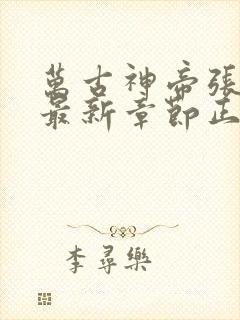 萬古神帝張
最新章節正
李尋樂